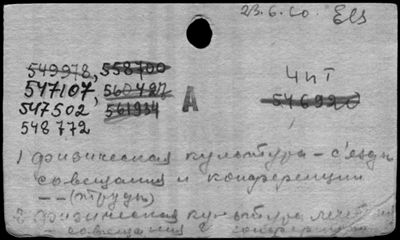 23.6.60. Els
549978, 558700
547107, 560487
547502 561934
548772
А
Чит
546920
1 физическая культура - съезды
совещания и конференции
-- (труды)
2 физическая культура лечебная
- совещания и конференции